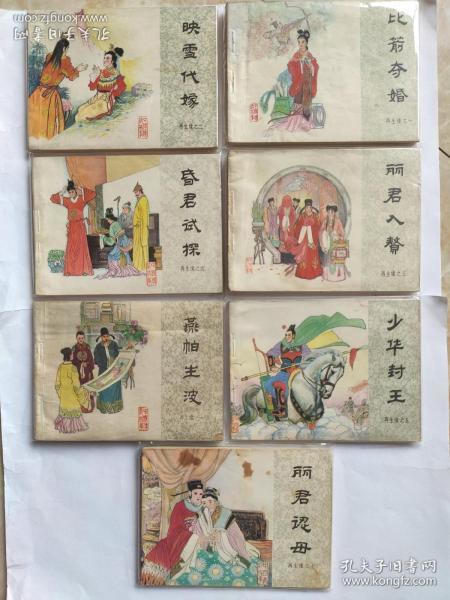 孔夫子旧书网
www.kongfz.com
映雪代嫁
再生缘之二
比箭夺婚
再生缘之一
昏君试探
再生缘之四
丽君入赘
再生缘之三
燕帕生波
少华封王
再生缘之五
丽君认母
再生缘之七
孔夫子旧书网
kongfz.com